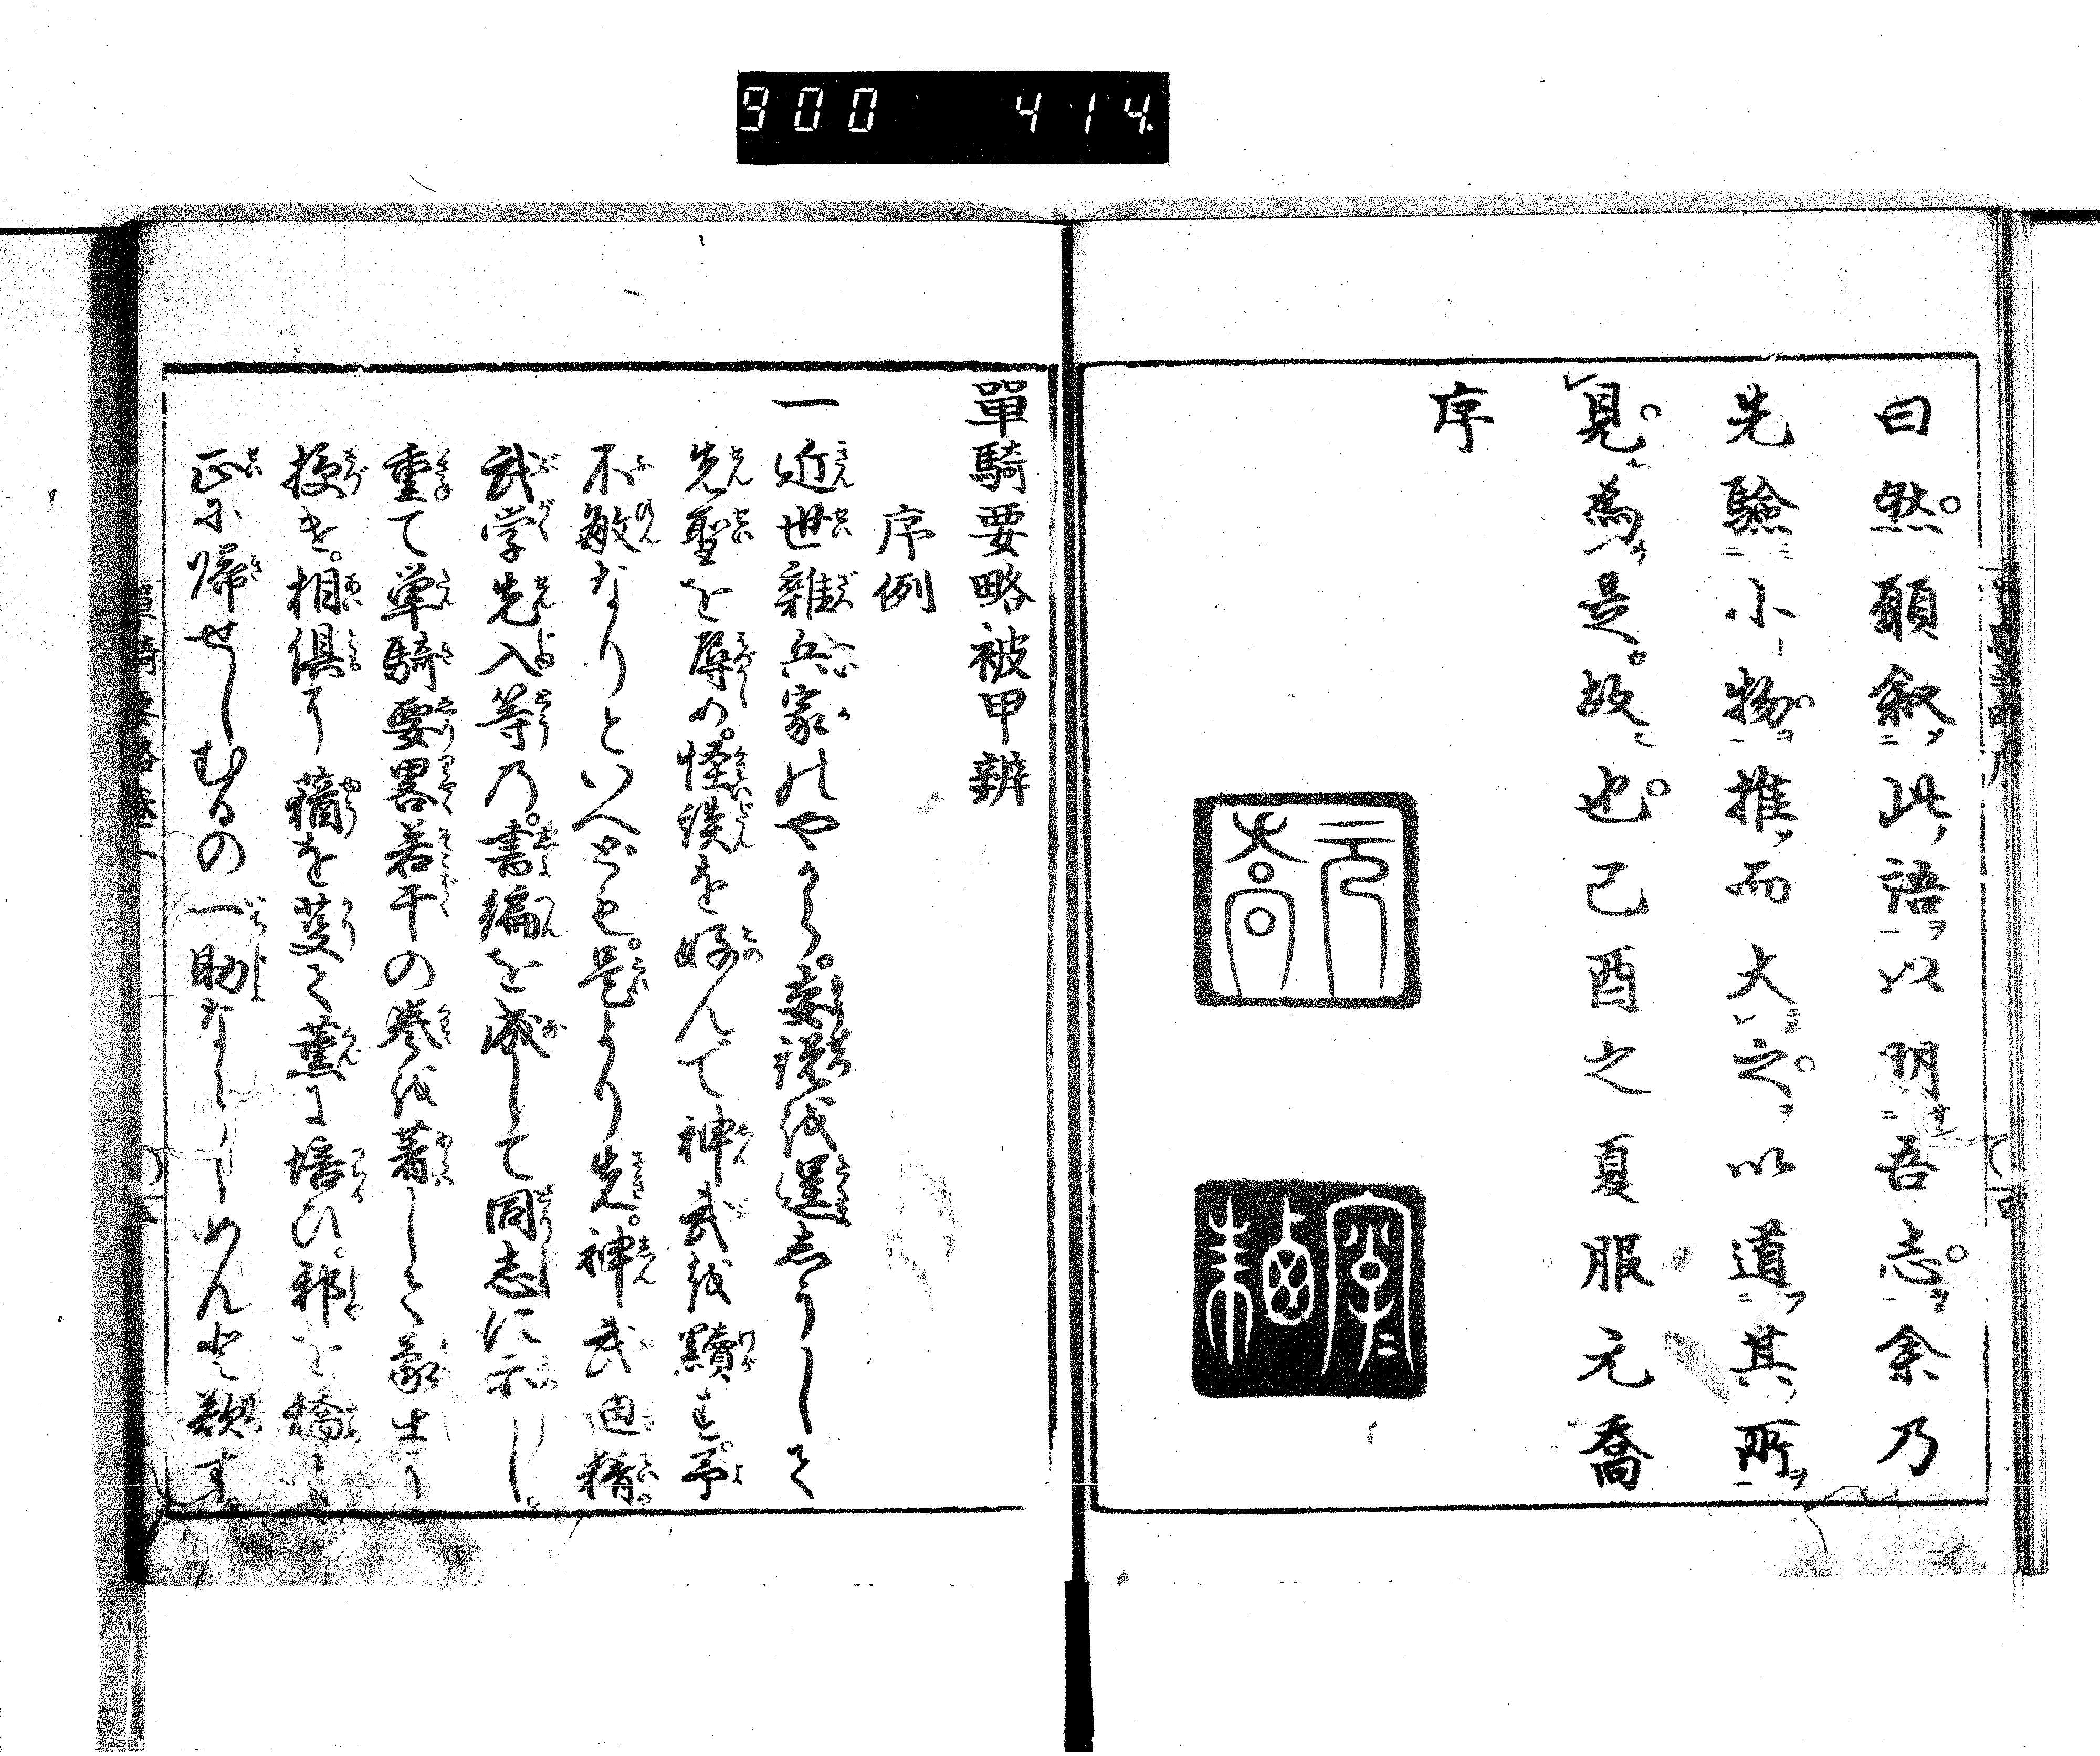 900 414
曰然願叙此語以明吾志余乃
先驗小物推而大之以道其所
見為是故也己酉之夏服元喬
序
元喬
單騎要略被甲辨
序例
一近世雜兵家のやから。妄説を逞しうして
先聖を辱め。怪談を好んで神武を黷す。予
不敏なりといへども。是より先。神武迪精。
武学先入等の。書編を成して同志に示し。
重て単騎要畧若干の巻を著して蒙士に
授け。相倶に
正に帰せしむるの一助ならしめんと欲す。